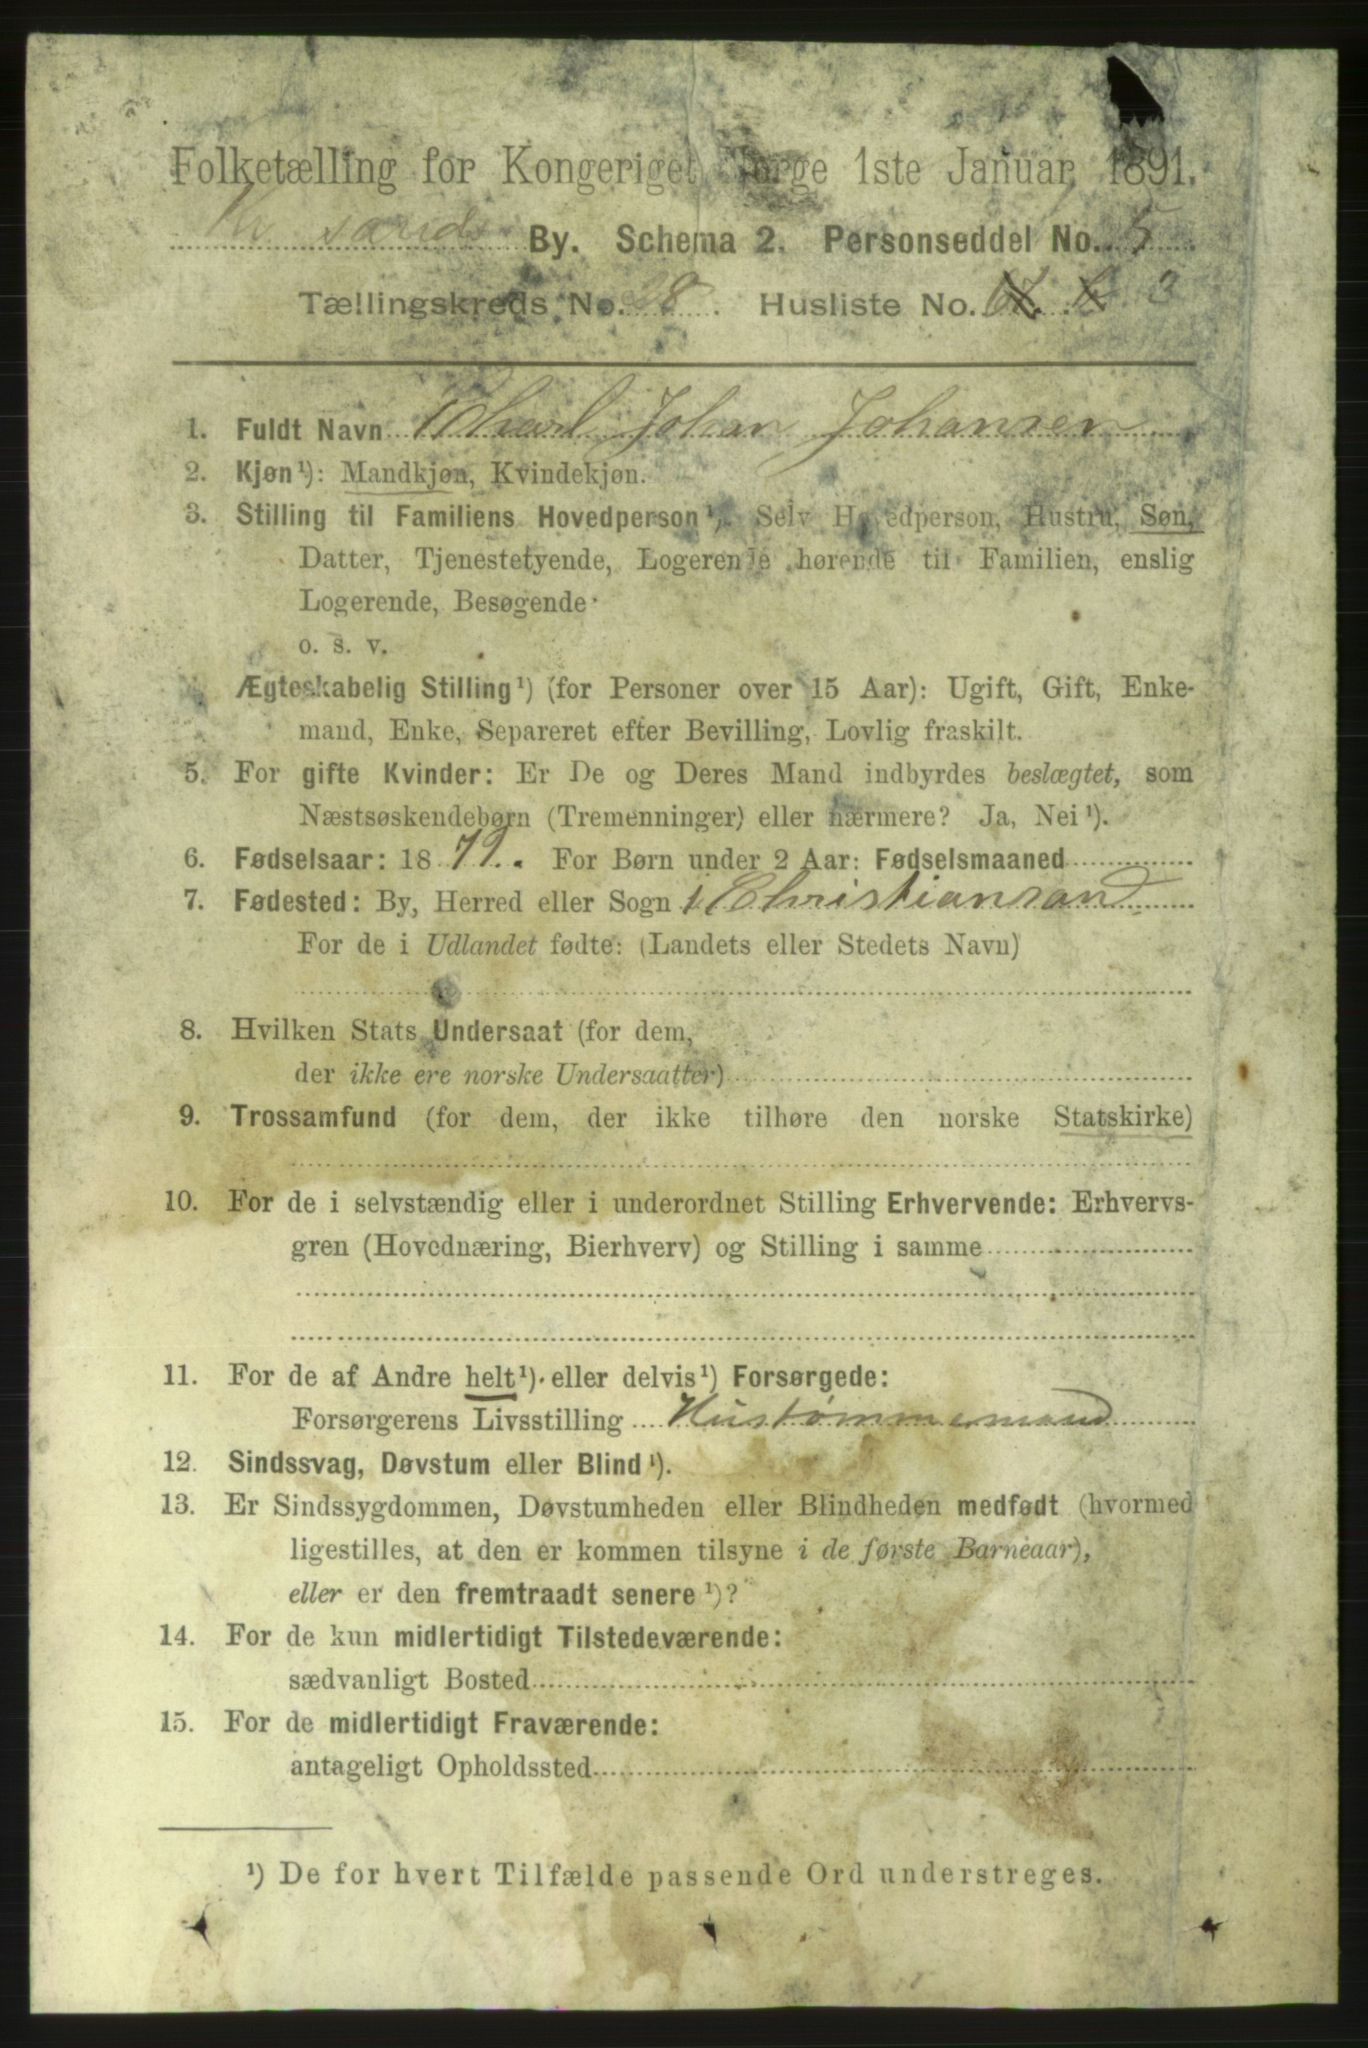 Folketælling for Kongeriget Norge 1ste Januar 1891.
Kr sands By. Schema 2. Personseddel No. 5
Tællingskreds No. 28. Husliste No. 3
1. Fuldt Navn Charl Johan Johansen
2. Kjøn¹): Mandkjøn, Kvindekjøn.
3. Stilling til Familiens Hovedperson¹). Selv Hovedperson, Hustru, Søn,
Datter, Tjenestetyende, Logerende hørende til Familien, enslig
Logerende, Besøgende
o. s. v.
Ægteskabelig Stilling¹) (for Personer over 15 Aar): Ugift, Gift, Enke-
mand, Enke, Separeret efter Bevilling, Lovlig fraskilt.
5. For gifte Kvinder: Er De og Deres Mand indbyrdes beslægtet, som
Næstsøskendebørn (Tremenninger) eller nærmere? Ja, Nei¹).
6. Fødselsaar: 1879. For Børn under 2 Aar: Fødselsmaaned
7. Fødested: By, Herred eller Sogn i Christiansand
For de i Udlandet fødte: (Landets eller Stedets Navn)
8. Hvilken Stats Undersaat (for dem,
der ikke ere norske Undersaatter)
9. Trossamfund (for dem, der ikke tilhøre den norske Statskirke)
10. For de i selvstændig eller i underordnet Stilling Erhvervende: Erhvervs-
gren (Hovednæring, Bierhverv) og Stilling i samme
11. For de af Andre helt¹) eller delvis¹) Forsørgede:
Forsørgerens Livsstilling Hustømmermand
12. Sindssvag, Døvstum eller Blind¹).
13. Er Sindssygdommen, Døvstumheden eller Blindheden medfødt (hvormed
ligestilles, at den er kommen tilsyne i de første Barneaar),
eller er den fremtraadt senere¹)?
14. For de kun midlertidigt Tilstedeværende:
sædvanligt Bosted
15. For de midlertidigt Fraværende:
antageligt Opholdssted
¹) De for hvert Tilfælde passende Ord understreges.